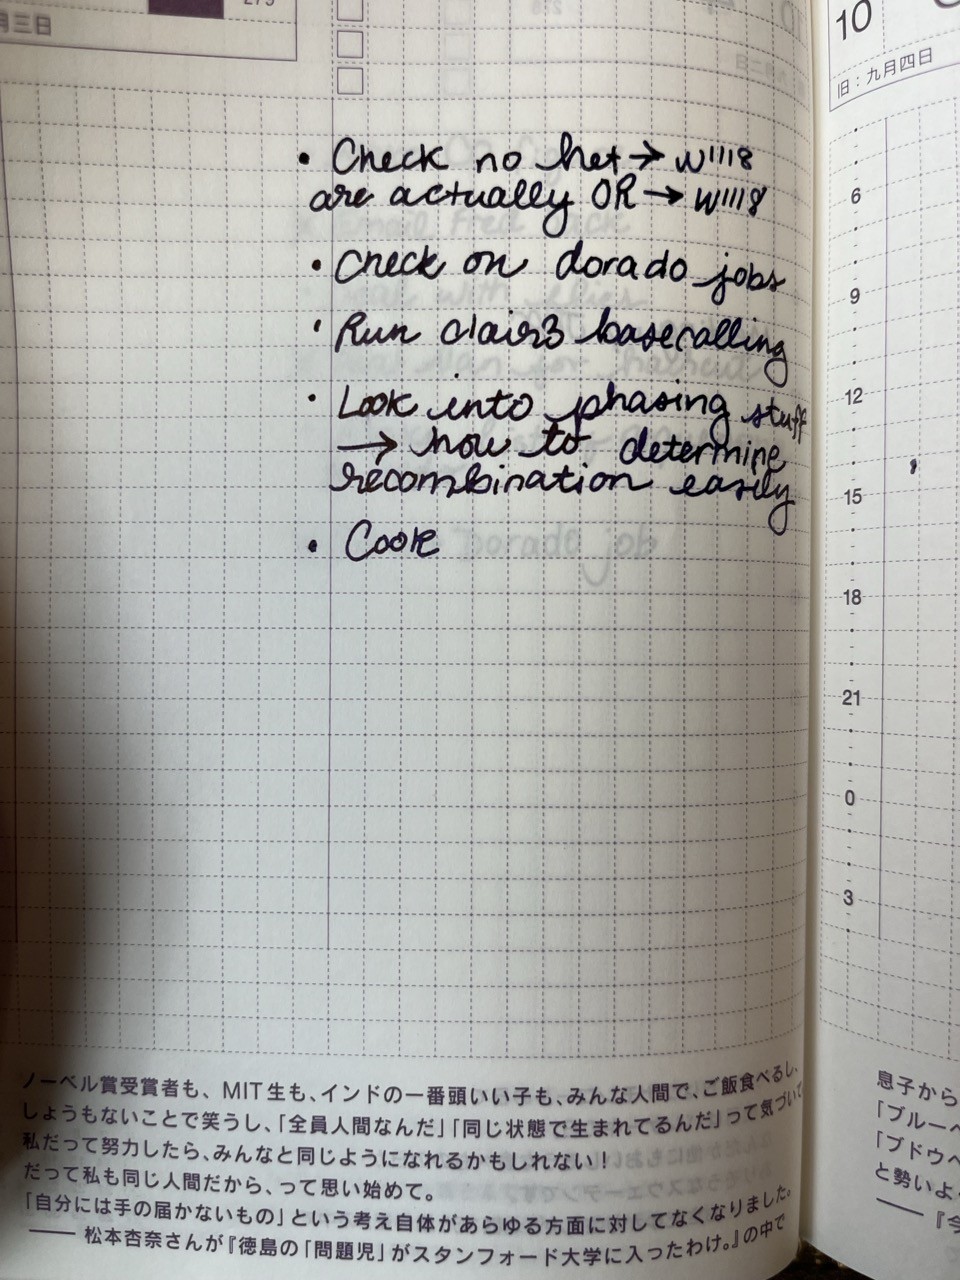 275
月三日
• Check no het → W1118
are actually OR → W1118
• Check on dorado jobs
• Run clair3 basecalling
• Look into phasing stuff
→ how to determine
recombination easily
• Cook
ノーベル賞受賞者も、MIT生も、インドの一番頭いい子も、みんな人間で、ご飯食べるし、
しょうもないことで笑うし、「全員人間なんだ」「同じ状態で生まれてるんだ」って気づいて
私だって努力したら、みんなと同じようになれるかもしれない！
だって私も同じ人間だから、って思い始めて。
「自分には手の届かないもの」という考え自体があらゆる方面に対してなくなりました。
―― 松本杏奈さんが『徳島の「問題児」がスタンフォード大学に入ったわけ。』の中で
10
旧：九月四日
6
9
12
15
18
21
0
3
息子から
「ブルーベ
「ブドウベ
と勢いよ
―― 『今